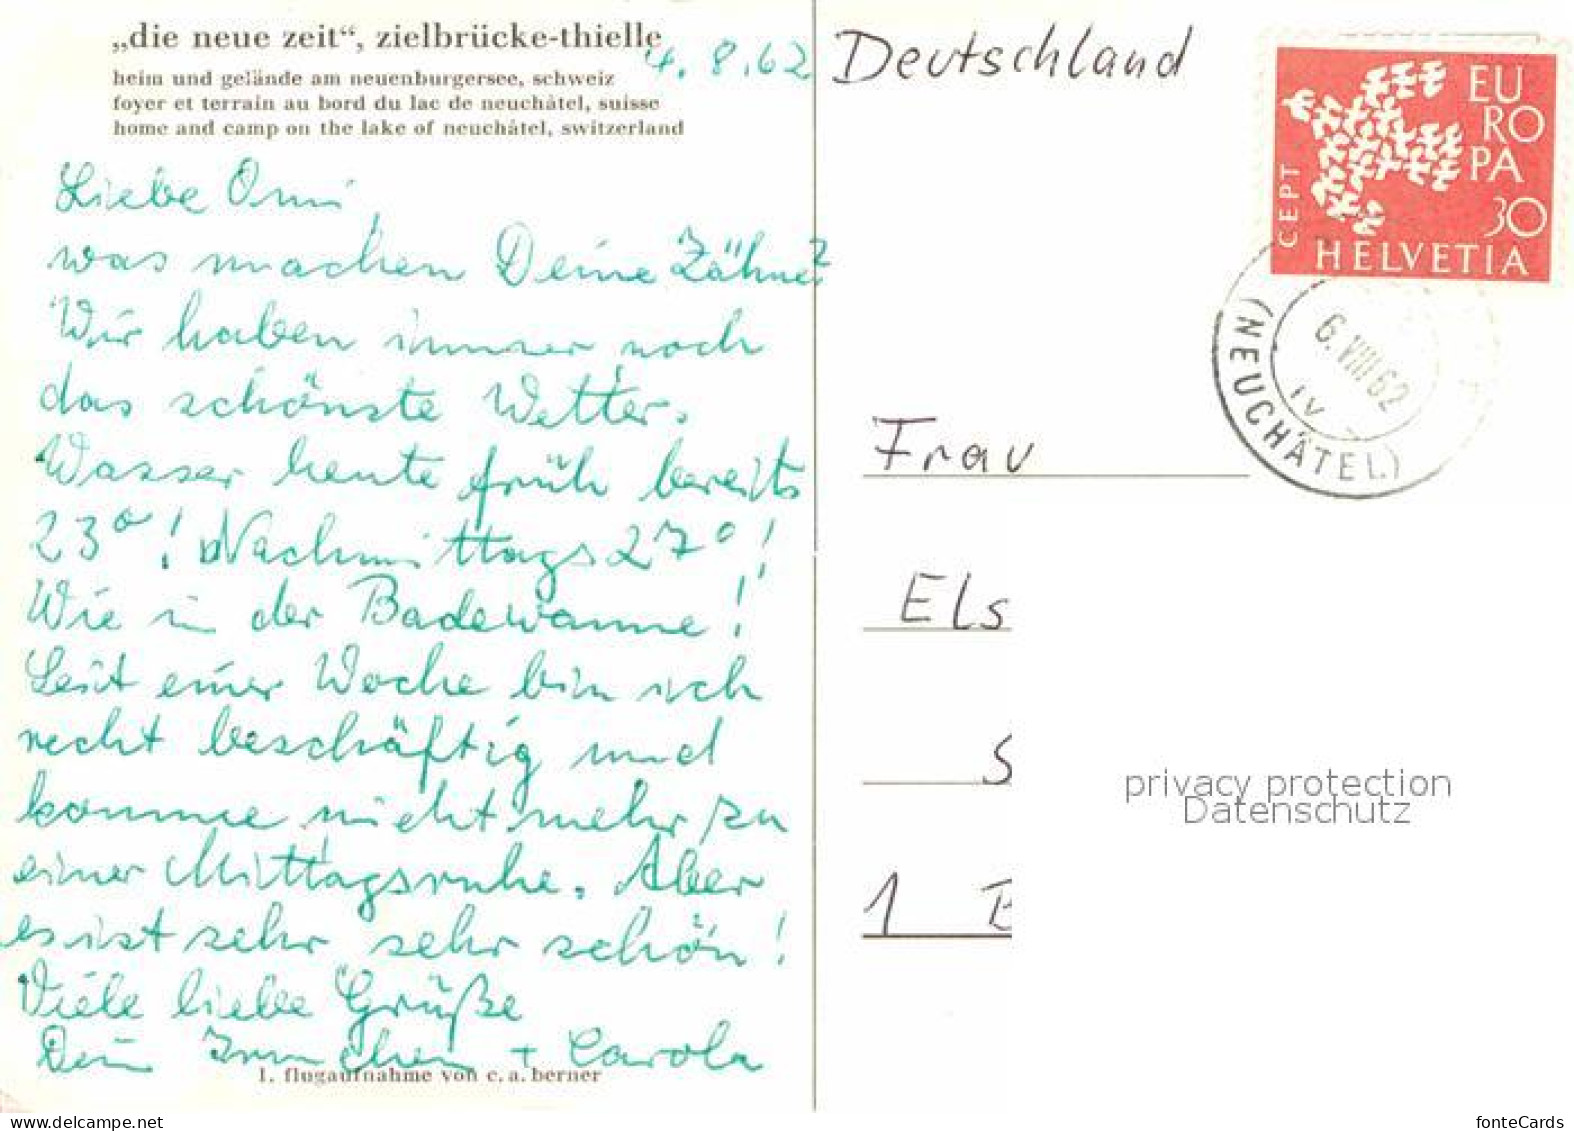 „die neue zeit“, zielbrücke-thielle
heim und gelände am neuenburgersee, schweiz
foyer et terrain au bord du lac de neuchâtel, suisse
home and camp on the lake of neuchâtel, switzerland
4. 8. 62
Liebe Omi,
was machen Deine Zähne?
Wir haben immer noch
das schönste Wetter.
Wasser heute früh bereits
23°! Nachmittags 27°!
Wie in der Badewanne!
Seit einer Woche bin ich
recht beschäftig und
komme nicht mehr zu
einer Mittagsruhe. Aber
es ist sehr sehr schön!
Viele liebe Grüße
Dein Irmchen + Carola
1. flugaufnahme von c. a. berner
Deutschland
EU
RO
PA
30
CEPT
HELVETIA
6. VIII 62
(NEUCHÂTEL)
Frau
Els
S
1 B
privacy protection
Datenschutz
www.delcampe.net
fonteCards